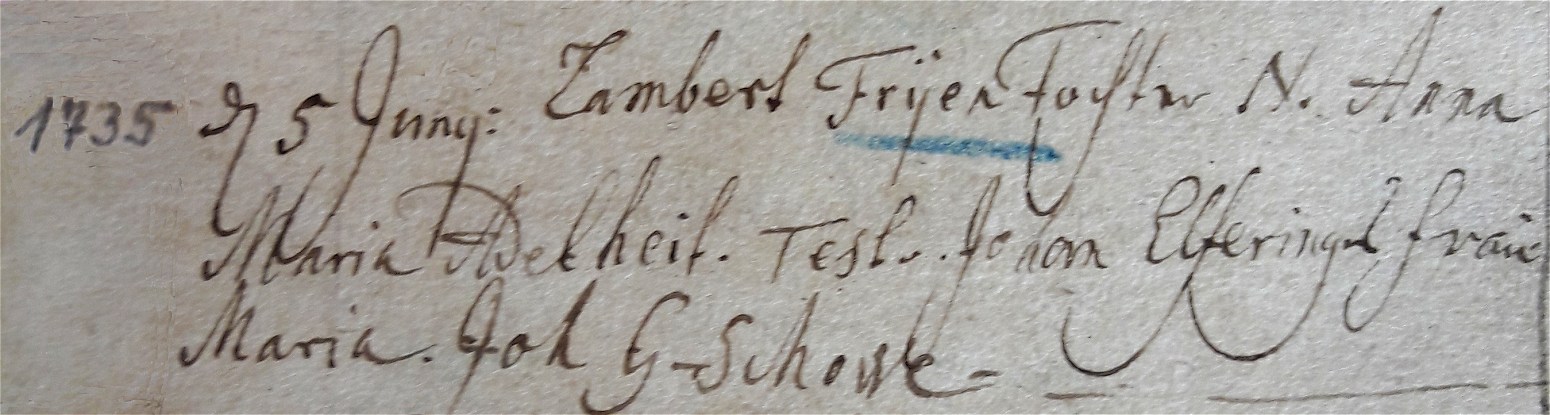 1735 d 5 Juny: Lambert Frijen tochter N. Anna
Maria Adelheit. Test. Johan Elferings frau
Maria. Joh G. Schowe